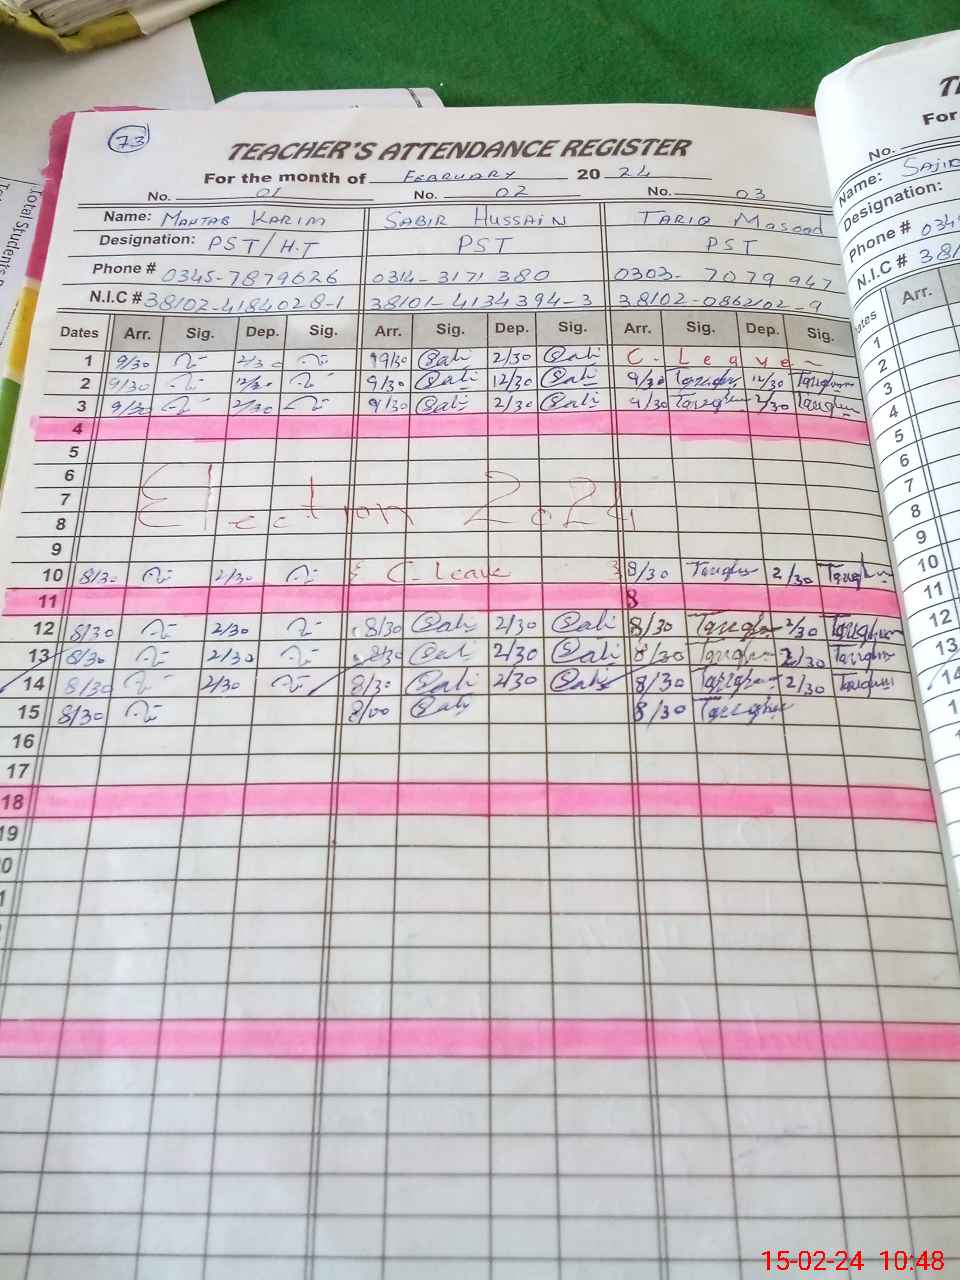 73
TEACHER'S ATTENDANCE REGISTER
For the month of FEBRUARY 20 24
No. 01 No. 02 No. 03
Name: MAHTAB KARIM SABIR HUSSAIN TARIQ Masood
Designation: PST/H.T PST PST
Phone # 0345-7879626 0314-3171380 0303-7079947
N.I.C # 38102-4184028-1 38101-4134394-3 38102-0862102-9
Dates Arr. Sig. Dep. Sig. Arr. Sig. Dep. Sig. Arr. Sig. Dep. Sig.
1 9/30 2/30 9/30 2/30 C. Leave
2 9/30 12/30 9/30 12/30 9/30 12/30
3 9/30 2/30 9/30 2/30 9/30 2/30
4
5
6
7 Election 2024
8
9
10 8/30 2/30 C. Leave 8/30 2/30
11 8
12 8/30 2/30 8/30 2/30 8/30 2/30
13 8/30 2/30 8/30 2/30 8/30 2/30
14 8/30 2/30 8/30 2/30 8/30 2/30
15 8/30 8/00 8/30
16
17
18
19
For
No.
Name: SAJID
Designation:
Phone # 034
N.I.C # 381
Arr.
1
2
3
4
5
6
7
8
9
10
11
12
13
14
Total Students
15-02-24 10:48